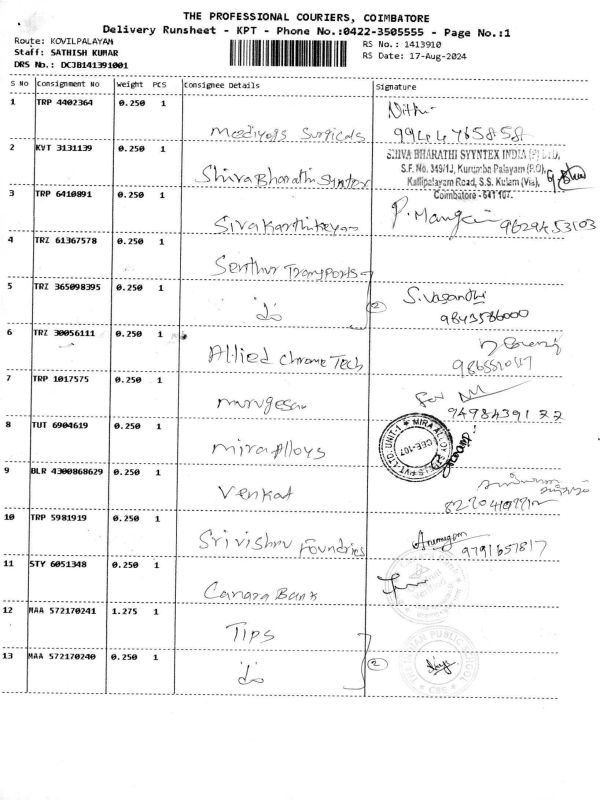 THE PROFESSIONAL COURIERS, COIMBATORE
Delivery Runsheet - KPT - Phone No.:0422-3505555 - Page No.:1
Route: KOVILPALAYAM
Staff: SATHISH KUMAR
DRS No.: DCJB141391001
RS No.: 1413910
RS Date: 17-Aug-2024
S No Consignment No Weight PCS Consignee Details Signature
1 TRP 4402364 0.250 1
Mediyogs Surgicals
2 KVT 3131139 0.250 1
Shiva Bharathi Syntex
SHIVA BHARATHI SYYNTEX INDIA (P) LTD,
S.F. No. 349/1J, Kurumba Palayam (P.O),
Kallipalayam Road, S.S. Kulam (Via),
Coimbatore - 641 107.
3 TRP 6410891 0.250 1
Sivakarthikeyan
P. Mangai 9629453103
4 TRZ 61367578 0.250 1
Senthur Transports
5 TRZ 365098395 0.250 1
do
2
S. Vasanthi
9843586000
6 TRZ 30056111 0.250 1
Allied Chrome Tech
7 TRP 1017575 0.250 1
murugesan
For
9478439122
8 TUT 6904619 0.250 1
mira Alloys
MIRA ALLOYS PVT. LTD. UNIT-1
CBE-107
9 BLR 4300868629 0.250 1
Venkat
10 TRP 5981919 0.250 1
Sri vishnu Foundries
Arumugam
9791657817
11 STY 6051348 0.250 1
Canara Bank
12 MAA 572170241 1.275 1
TIPS
13 MAA 572170240 0.250 1
do
2
THE INDIAN PUBLIC SCHOOL
CBE